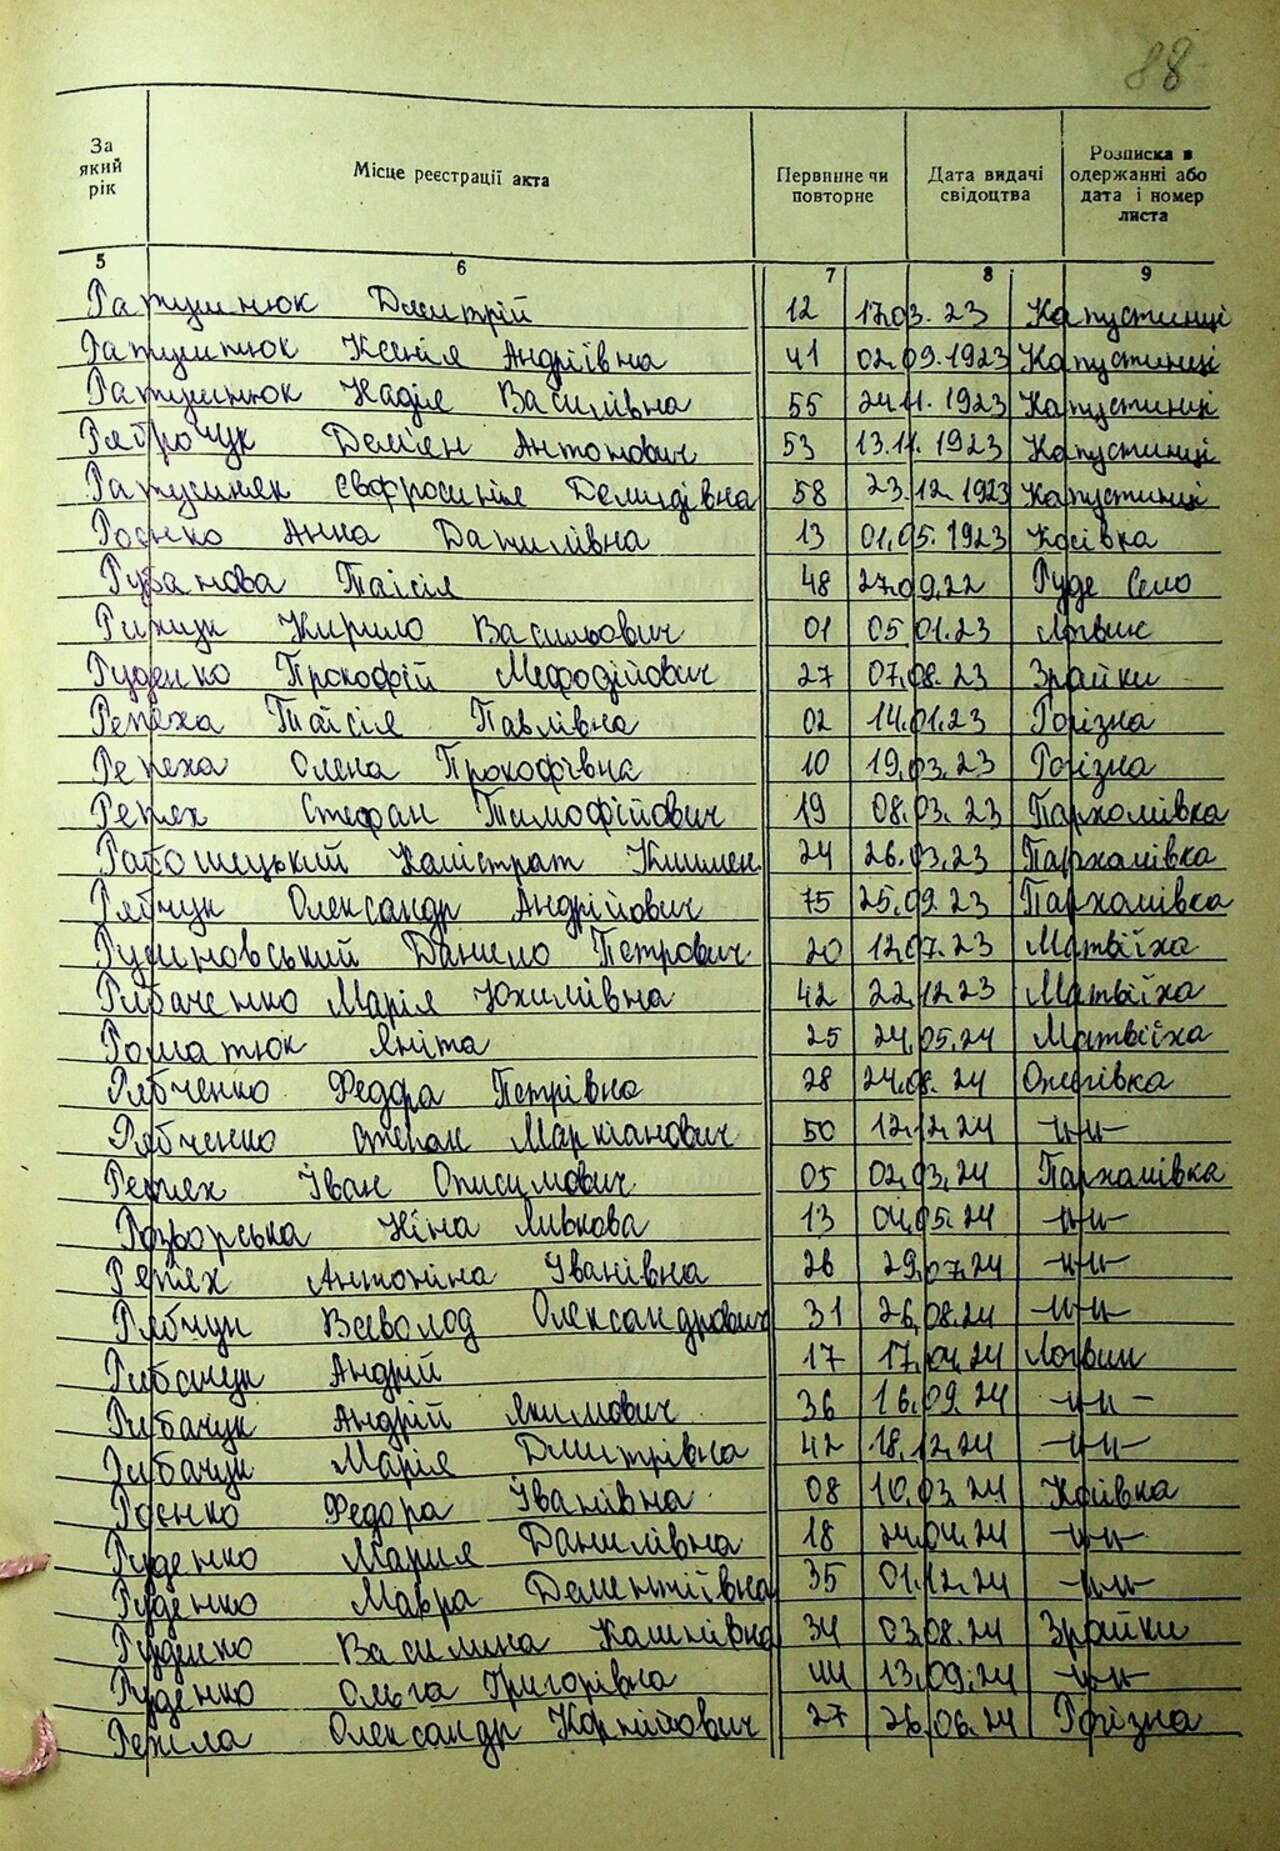 88
За який рік
Місце реєстрації акта
Первинне чи повторне
Дата видачі свідоцтва
Розписка в одержанні або дата і номер листа
5 6 7 8 9
Ратушнюк Дмитрій 12 17.03.23 Капустинці
Ратушнюк Ксенія Андріївна 41 02.09.1923 Капустинці
Ратушнюк Надія Василівна 55 24.11.1923 Капустинці
Дем'ян Антонович 53 13.11.1923 Капустинці
Ратушняк Євфросинія Демидівна 58 23.12.1923 Капустинці
Роєнко Анна Данилівна 13 01.05.1923 Косівка
Рубанова Таісія 48 27.09.22 Руде Село
Кирило Васильович 01 05.01.23 Логвин
Руденко Прокофій Мефодійович 27 07.08.23 Зрайки
Репеха Таїсія Павлівна 02 14.01.23 Рогізна
Репеха Олена Прокофівна 10 19.03.23 Рогізна
Репях Стефан Тимофійович 19 08.03.23 Пархомівка
Калістрат Климен 24 26.03.23 Пархомівка
Рябчук Олександр Андрійович 75 25.09.23 Пархомівка
Данило Петрович 20 12.07.23 Матвіїха
Рибаченко Марія Юхимівна 42 22.12.23 Матвіїха
Яніта 25 24.05.24 Матвіїха
Рябченко Федора Петрівна 28 24.08.24
Рябченко Степан Маркіанович 50 12.12.24 -"-"-
Репях Іван Онисимович 05 02.03.24 Пархомівка
Розворська Ніна Львівна 13 04.05.24 -"-"-
Репях Антоніна Іванівна 26 29.07.24 -"-"-
Рябчук Всеволод Олександрович 31 26.08.24 -"-"-
Рибачук Андрій 17 17.04.24 Логвин
Рибачук Андрій Якимович 36 16.09.24 -"-"-
Рибачук Марія Дмитрівна 42 18.12.24 -"-"-
Роєнко Федора Іванівна 08 10.03.24 Косівка
Руденко Мария Данилівна 18 24.04.24 -"-"-
Руденко Мавра Дементіївна 35 01.12.24 -"-"-
Руденко Василина 34 03.08.24 Зрайки
Руденко Ольга Григорівна 44 13.09.24 -"-"-
Олександр Корнійович 27 26.06.24 Рогізна